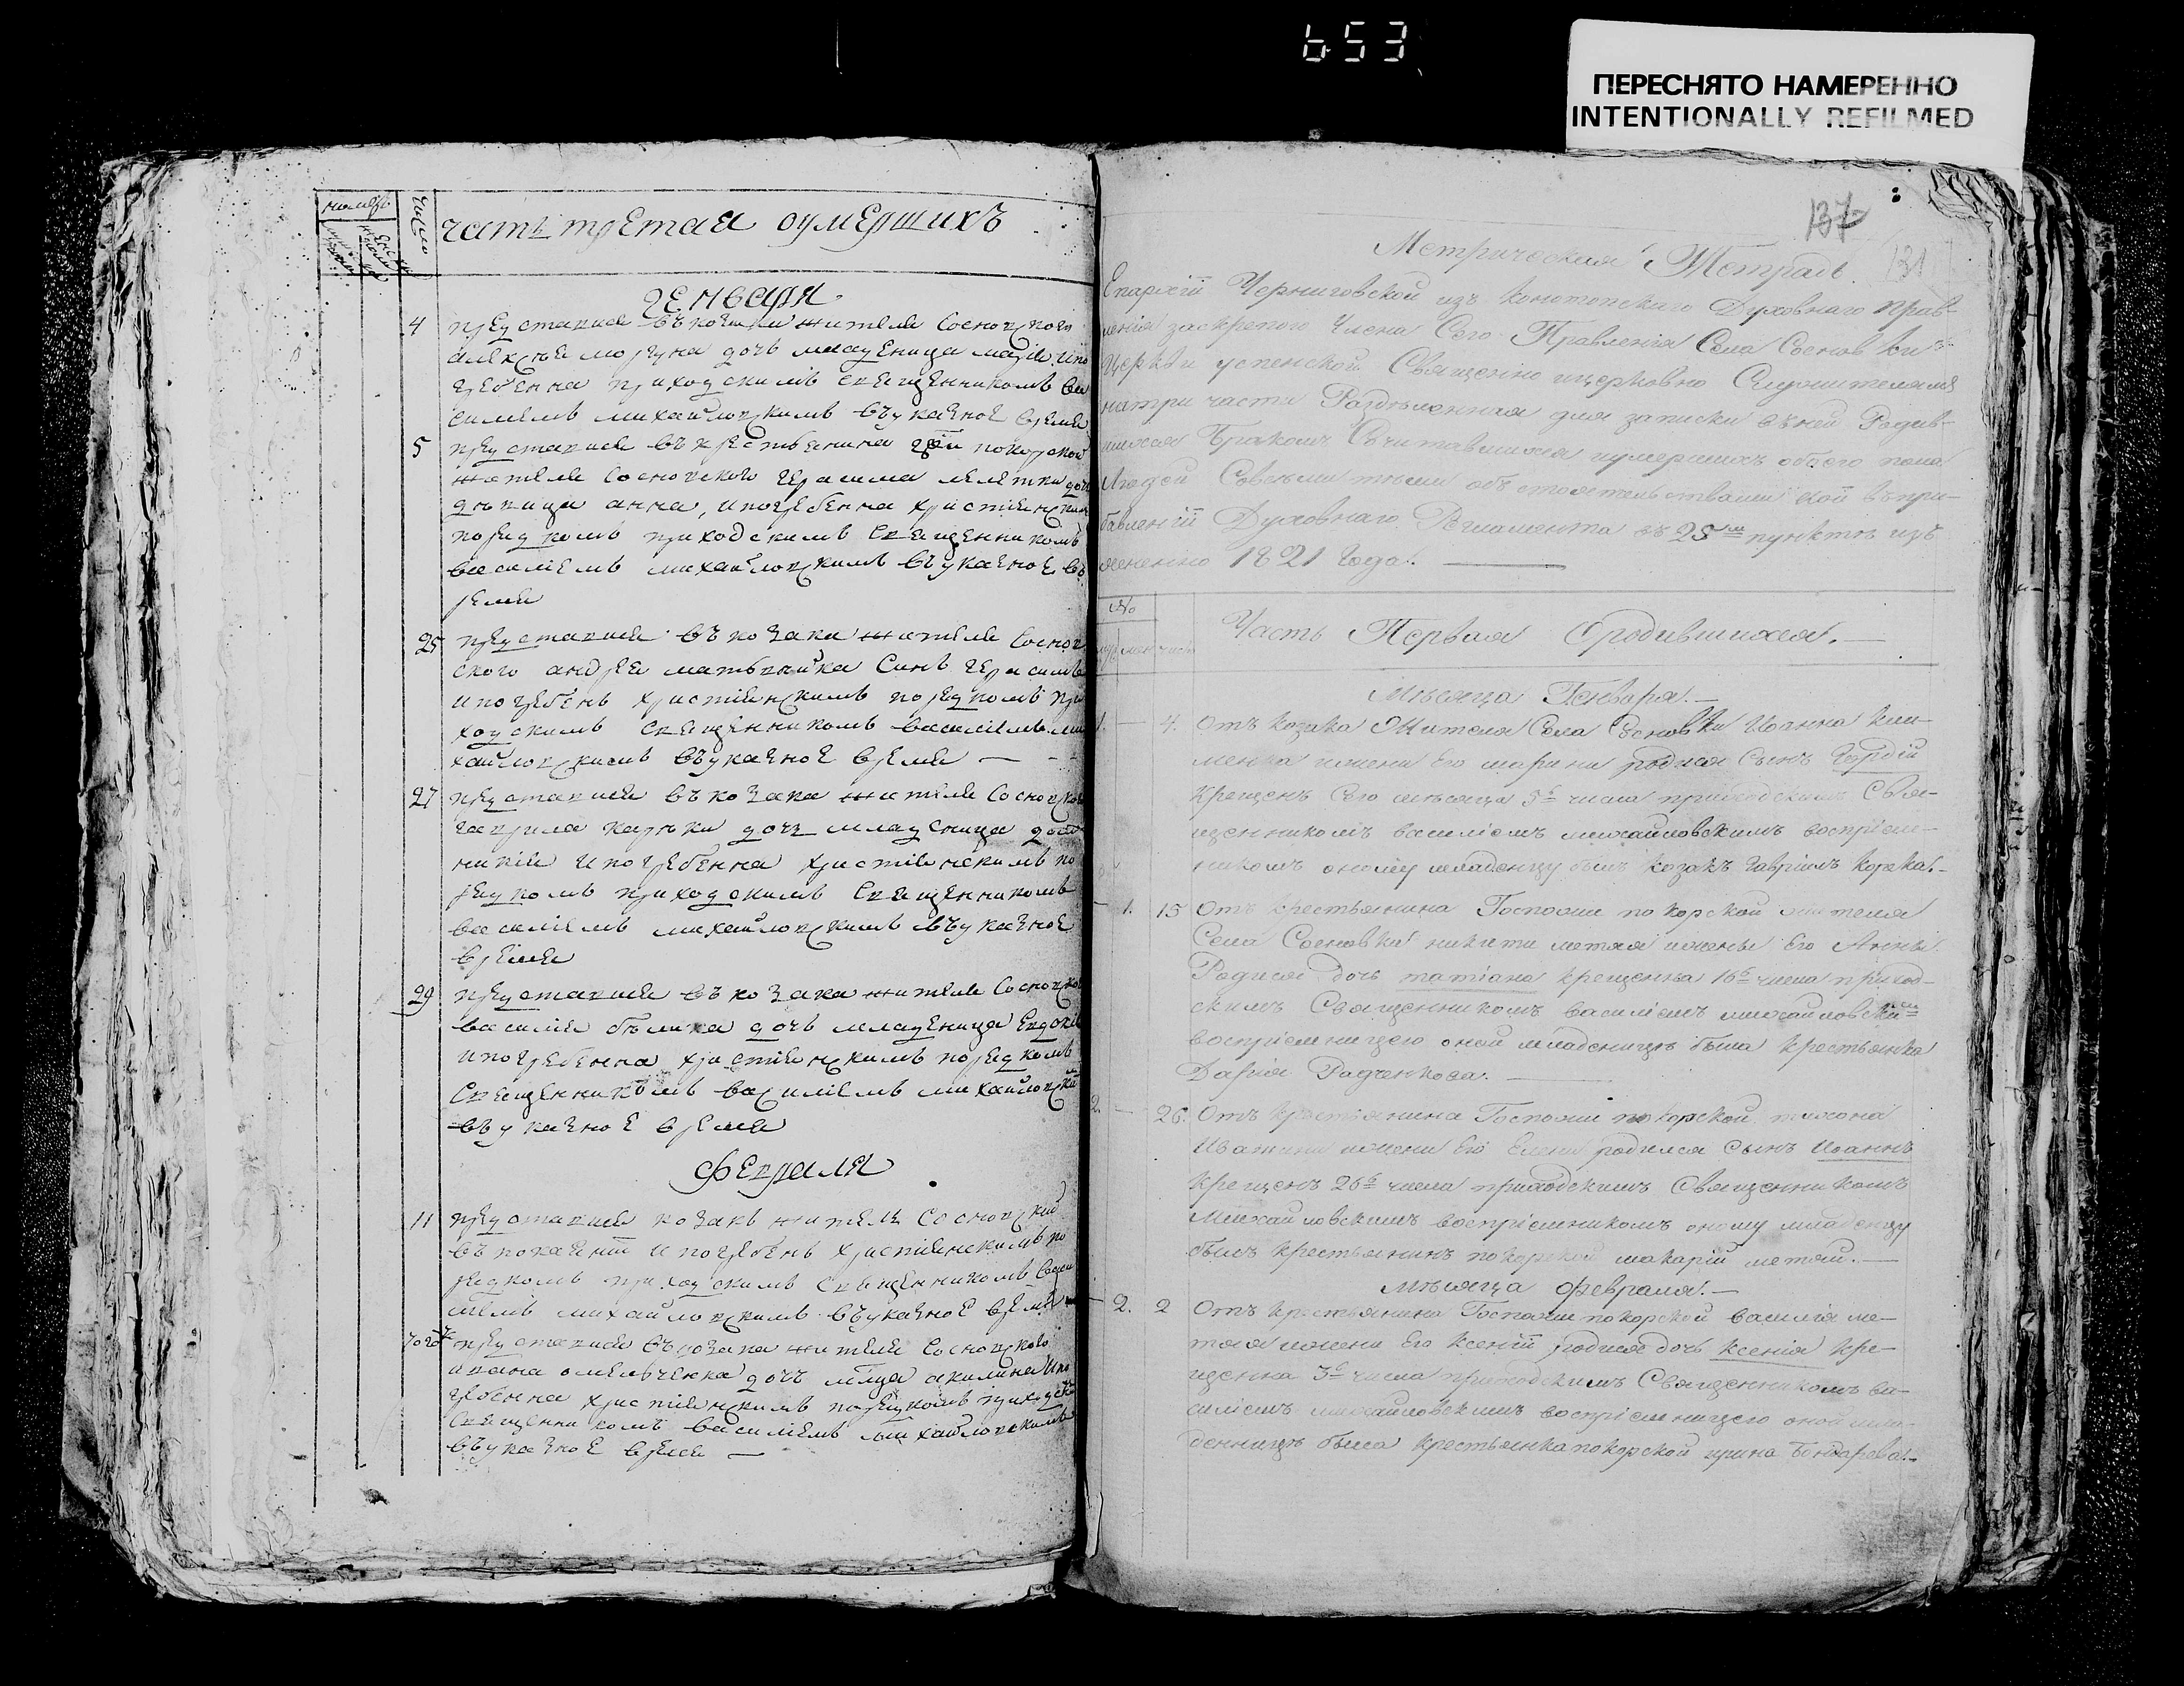 653
ПЕРЕСНЯТО НАМЕРЕННО
INTENTIONALLY REFILMED
число
часть третая оумершихъ
генваря
4 преставися въ козака жителя сосновского
дочь младеница
гребенна приходскимъ священникомъ ва
силиемъ михайловскимъ въуказное время
5 преставися въ крестьянина гпжи покорской
жителя сосновского герасима дочь
девица анна, ипогребенна християнским
порядкомъ приходскимъ священникомъ
василиемъ михайловскимъ въуказное въ
ремя
25 преставися въ козака жителя соснов
ского андрея синъ герасимъ
ипогребенъ християнскимъ порядкомъ при
ходскимъ священникомъ василиемъ ми
хайловскимъ въуказное время —
27 преставися въ козака жителя сосновского
гаврила дочь младеница
ипогребенна християнскимъ по
рядкомъ приходскимъ священникомъ
василиемъ михайловскимъ въуказное
время
29 преставися въ козака жителя сосновского
василия дочь младеница евдокия
ипогребенна християнскимъ порядкомъ
священникомъ василиемъ михайловским
въуказное время
февраля
11 преставися козакъ жителъ сосновский
въ покаянии ипогребенъ християнскимъ по
рядкомъ приходскимъ священникомъ васи
лиемъ михайловскимъ въуказное время
преставися въ козака жителя сосновского
ивана омелвченка дочъ акилина ипо
гребенна християнскимъ порядкомъ приходским
священникомъ василиемъ михайловскимъ
въуказное время —
137
131
Метрическая Тетрадь
Епархіи Черниговской изъ Конотопскаго Духовнаго Прав-
ленія заскрепою Члена Сего Правленія Села Сосновки
Церкви успенской Священно ицерковно Служителямъ
натри части Раздѣленная для записки вѣней Родив-
шихся Бракомъ Сочитавшихся иумершихъ обоего пола
Людей Совсѣми тѣми обстоятельствами кой въпри-
бавленіи Духовнаго Регламента въ пунктѣ изъ
яснено 1821 Года. —
№
Часть Первая Ородившихся. —
Мѣсяца Генваря. —
1. — 4. Отъ козака Жителя Села Сосновки Иоанна кли-
менка ижени Его марини родися Сынъ Гордій
Крещенъ Сего мѣсяца 5г числа приходскимъ Свя-
щенникомъ василіемъ михайловскимъ воспріем-
никомъ оному младенцу былъ козакъ Гавріилъ
— 1. 15 Отъ крестьянина Госпожи покорской жителя
Села Сосновки никити метлы ижены Его Анны
Родися дочь татіана крещенна 16г числа приход-
скимъ Священникомъ василіемъ михайловским
воспріемницею оной младеницѣ была крестьянка
Дарія Радченкова. —
2. — 26. Отъ крестьянина Госпожи покорской
ижени Его Елени родился сынъ Иоаннъ
крещенъ 26г числа приходскимъ Священникомъ
Михайловскимъ воспріемникомъ оному младенцу
былъ крестьянинъ покорской макарій метла. —
мѣсяца февраля. —
— 2. 2 Отъ крестьянина Госпожи покорской василія ме-
тлы ижени Его Ксеніи родися дочь ксенія кре-
щенна 3г числа приходскимъ Священникомъ ва-
силіемъ михайловскимъ воспріемницею оной мла-
денницѣ была крестьянка покорской ирина Бондарева. —